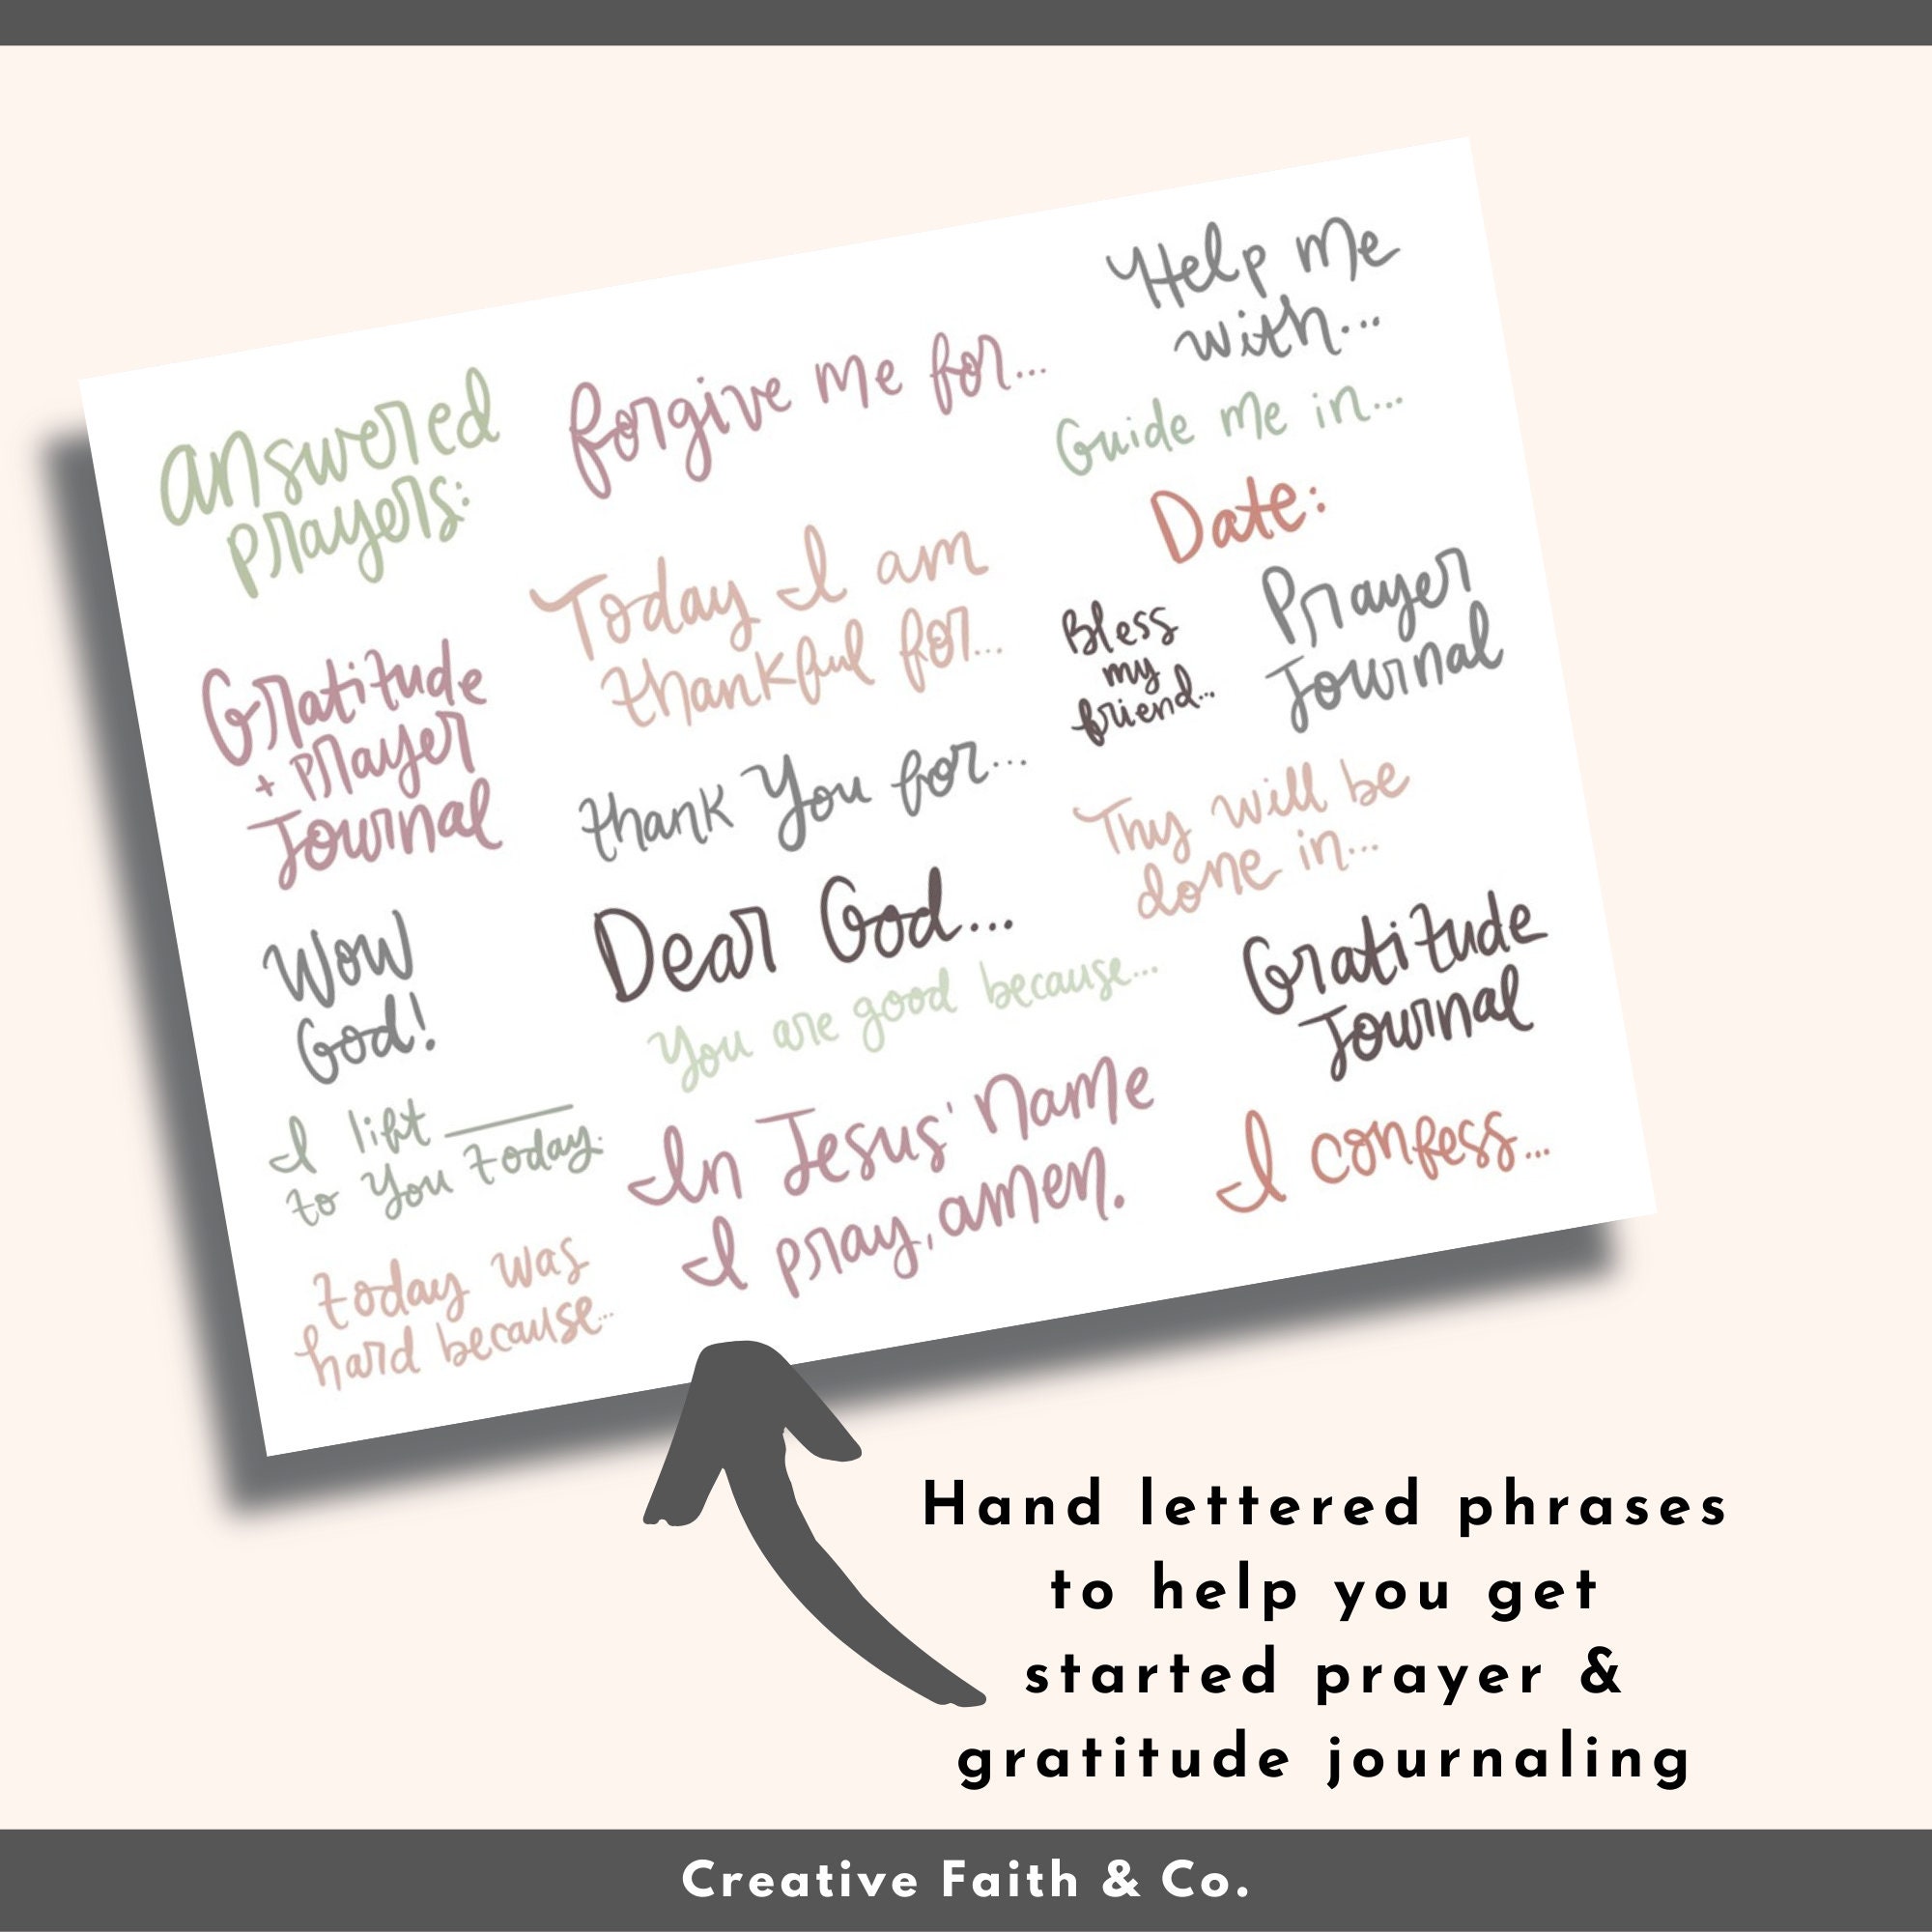 answered
prayers:
Gratitude
+ Prayer
Journal
Wow
God!
I lift ______
to You today.
today was
hard because...
forgive me for...
Today I am
thankful for...
thank You for...
Dear God...
You are good because...
In Jesus' Name
I pray, amen.
Help me
with...
Guide me in...
Date:
Bless
my
friend...
Prayer
Journal
Thy will be
done in...
Gratitude
Journal
I confess...
Hand lettered phrases
to help you get
started prayer &
gratitude journaling
Creative Faith & Co.